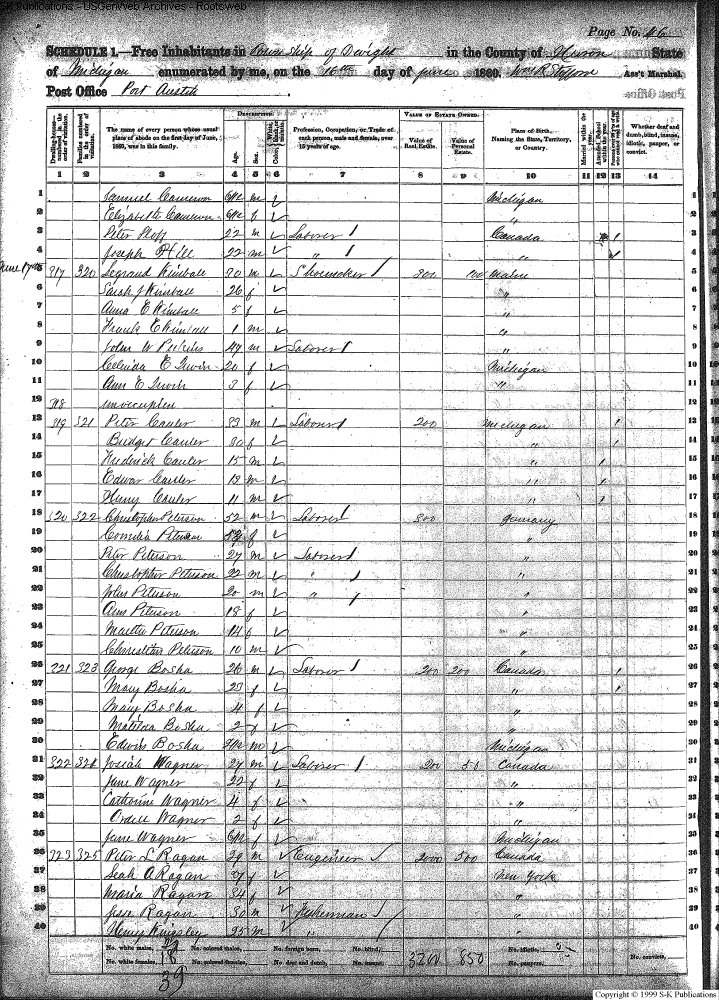 SK Publications - USGenWeb Archives - Rootsweb
Page No. 46
SCHEDULE 1.—Free Inhabitants in Township of Dwight in the County of Huron State
of Michigan enumerated by me, on the 16th day of June 1860. Wm R Stafford Ass't Marshal.
Post Office Port Austin
Dwelling-houses—numbered in the order of visitation. Families numbered in the order of visitation. The name of every person whose usual place of abode on the first day of June, 1860, was in this family. DESCRIPTION. Age. Sex. Color, White, black, or mulatto. Profession, Occupation, or Trade of each person, male and female, over 15 years of age. VALUE OF ESTATE OWNED. Value of Real Estate. Value of Personal Estate. Place of Birth, Naming the State, Territory, or Country. Married within the year. Attended School within the year. Persons over 20 y'rs of age who cannot read & write. Whether deaf and dumb, blind, insane, idiotic, pauper, or convict.
1 2 3 4 5 6 7 8 9 10 11 12 13 14
1 Samuel Cameron 6/12 m Michigan 1
2 Elizabeth Cameron 6/12 f " 2
3 Peter 22 m Laborer / Canada / 3
4 Joseph Hill 22 m " / " 4
June 17th 5 317 320 Legrand Kimball 30 m Shoemaker / 300 100 Maine 5
6 Sarah J Kimball 26 f " 6
7 Anna E Kimball 5 f " 7
8 Frank E Kimball 1 m " 8
9 John W Perkins 47 m Laborer / " 9
10 Celinda E Irwin 20 f Michigan 10
11 Ann E Irwin 3 f " 11
12 318 unoccupied 12
13 319 321 Peter Cauler 39 m Laborer / 200 Michigan / 13
14 Bridget Cauler 30 f " / 14
15 Frederick Cauler 15 m " / 15
16 Edwar Cauler 13 m " / 16
17 Henry Cauler 11 m " / 17
18 320 322 Christopher Peterson 52 m Laborer / 300 Germany 18
19 Cornelia Peterson f " 19
20 Peter Peterson 27 m Laborer / " 20
21 Christopher Peterson 22 m " / " 21
22 John Peterson 20 m " / " 22
23 Ann Peterson 18 f " 23
24 Martha Peterson 14 f " 24
25 Peterson 10 m " 25
26 321 323 George Bosha 26 m Laborer / 200 200 Canada / 26
27 Mary Bosha 23 f " / 27
28 Mary Bosha 4 f " 28
29 Matilda Bosha 2 f " 29
30 Edwin Bosha m Michigan 30
31 322 324 Josiah Wagner 27 m Laborer / 200 50 Canada 31
32 Jane Wagner 22 f " 32
33 Catharine Wagner 4 f " 33
34 Ordell Wagner 2 f " 34
35 Jane Wagner 6/12 f Michigan 35
36 323 325 Peter L Ragan 39 m Engineer / 2000 500 Canada 36
37 Leah A Ragan f New York 37
38 Maria Ragan 34 f " 38
39 Jesse Ragan 30 m Fisherman / " 39
40 Henry Kingsley 35 m " / " 40
No. white males, No. colored males, No. foreign born, No. blind, No. idiotic,
No. white females, 18 No. colored females, No. deaf and dumb, No. insane, 3200 850 No. paupers, No. convicts,
39
Copyright © 1999 S-K Publications